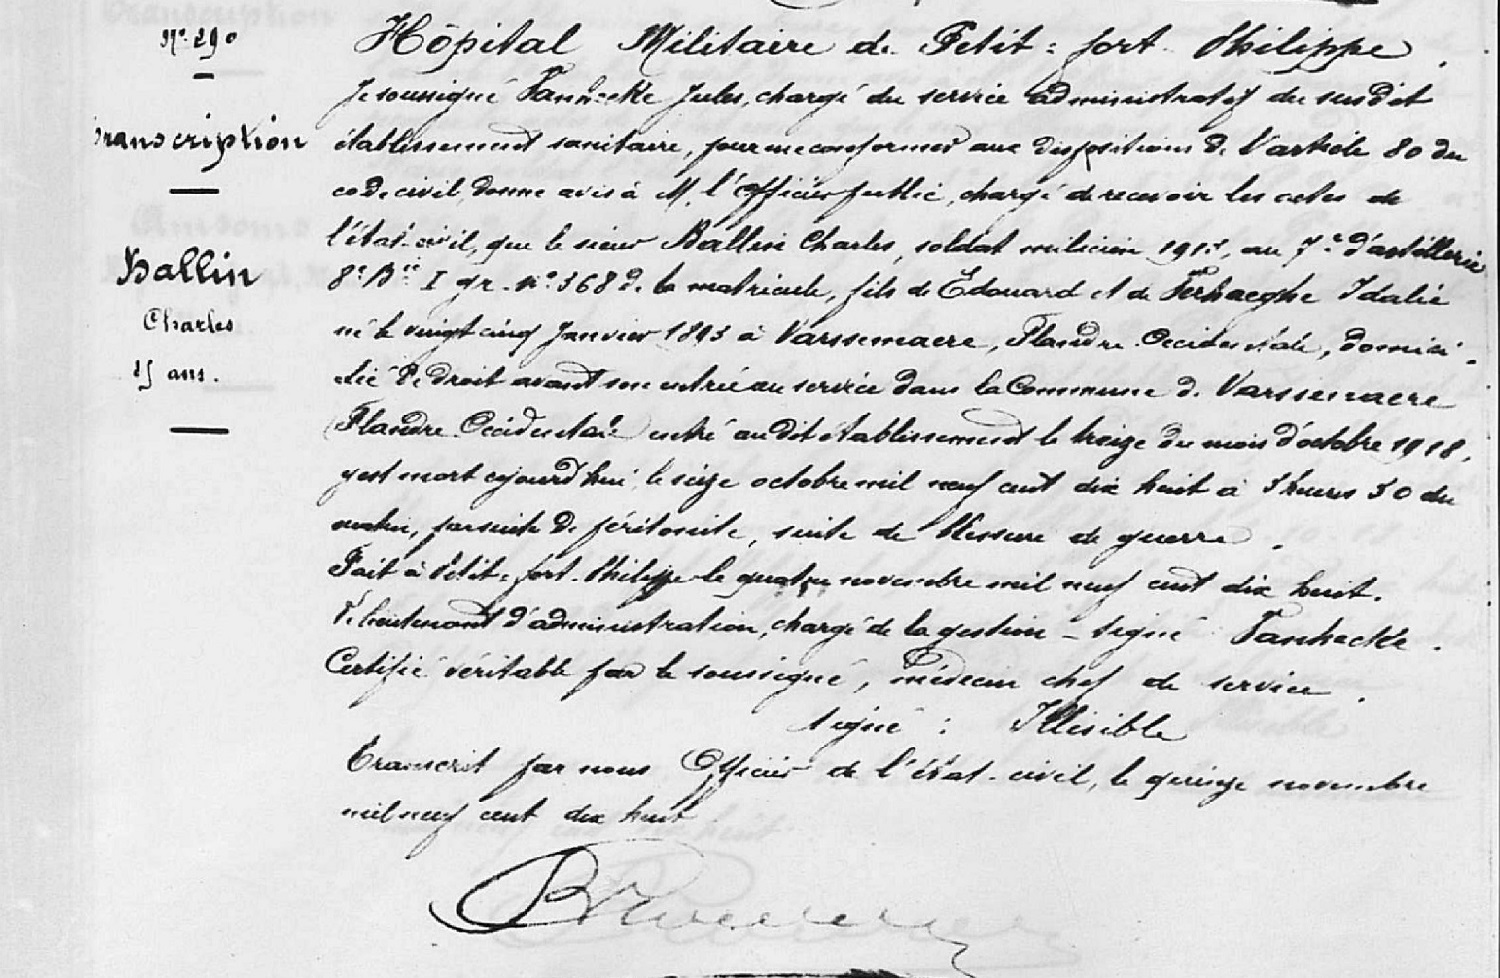 Transcription
Nº 290
Transcription
Ballin
Charles
25 ans.
Hôpital Militaire de Petit-fort Philippe.
Je soussigné Vanhecke Jules, chargé du service administratif du susdit
établissement sanitaire, pour me conformer aux dispositions de l'article 80 du
code civil, donne avis à M. l'Officier public, chargé de recevoir les actes de
l'état-civil, que le sieur Ballin Charles, soldat milicien 1913, au 7e d'artillerie
8e Bie I gr. nº 368 de la matricule, fils de Edouard et de Verhaeghe Idalie
né le vingt cinq Janvier 1893 à Varssenaere, Flandre Occidentale, domici-
lié de droit avant son entrée au service dans la Commune de Varssenaere
Flandre Occidentale entré au dit établissement le treize du mois d'octobre 1918,
y est mort aujourd'hui, le seize octobre mil neuf cent dix huit à 3 heures 30 du
matin, par suite de péritonite, suite de blessure de guerre.
Fait à Petit-fort-Philippe le quatre novembre mil neuf cent dix huit.
Le lieutenant d'administration, chargé de la gestion - signé Vanhecke.
Certifié véritable par le soussigné, médecin chef de service.
signé : Illisible
Transcrit par nous Officier de l'état-civil, le quinze novembre
mil neuf cent dix huit